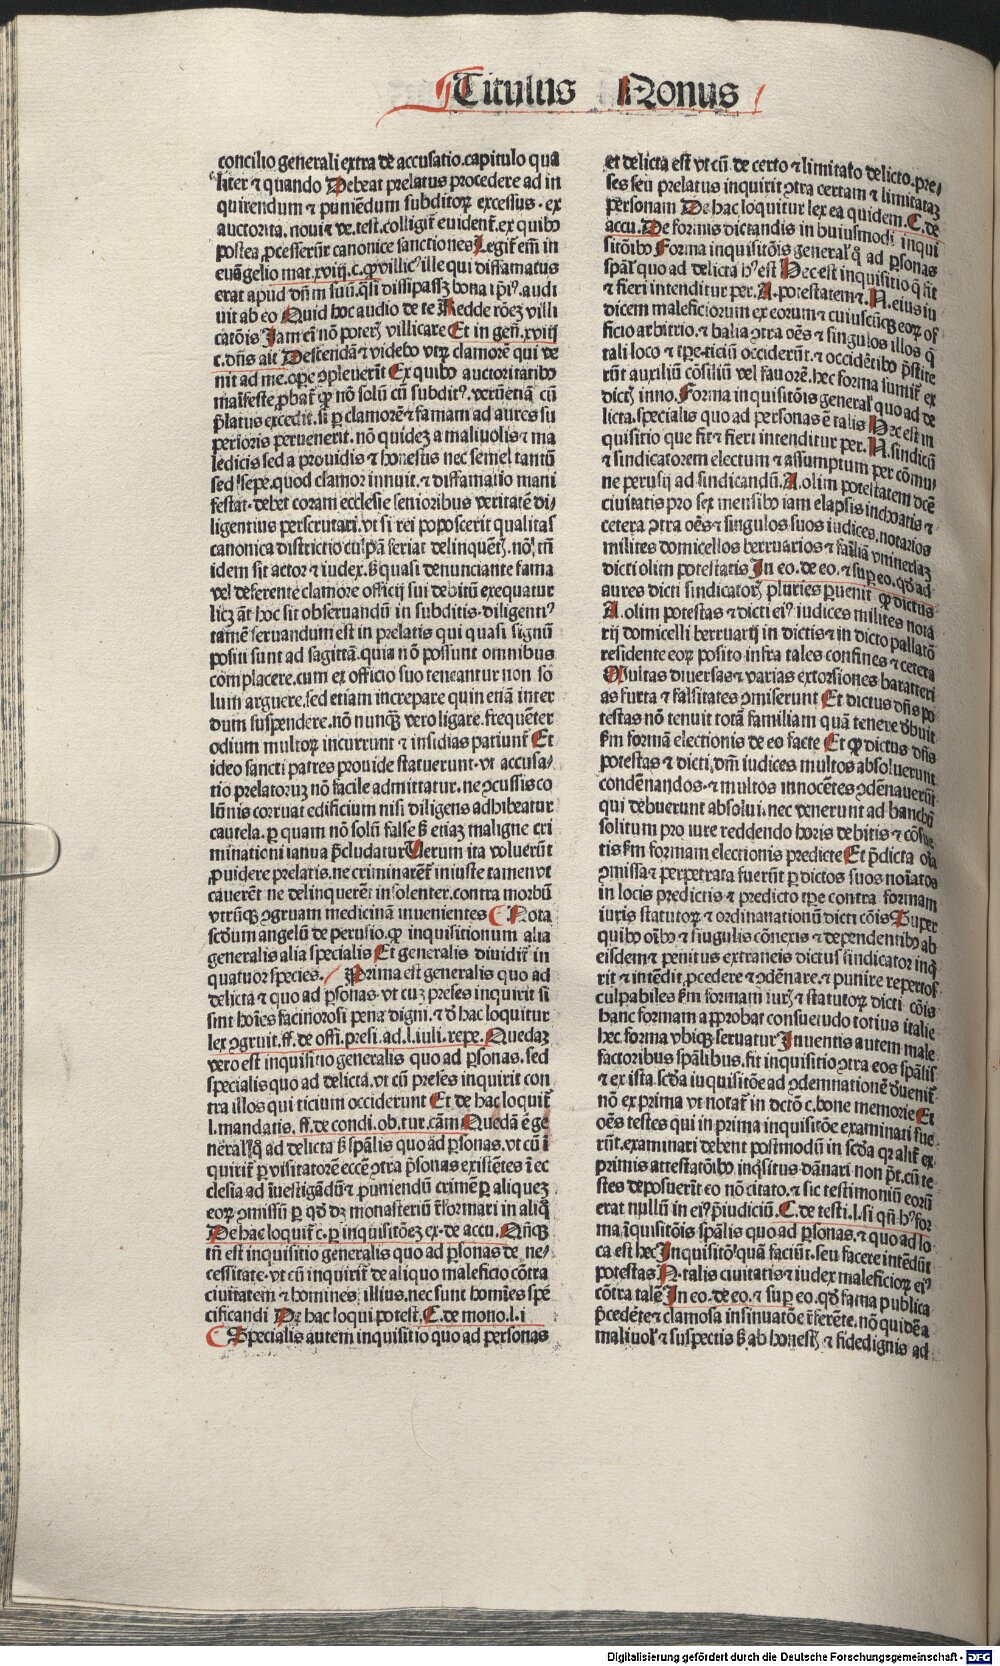 Titulus Nonus
concilio generali extra de accusatio.capitulo qua
liter ⁊ quando Debeat prelatus procedere ad in
quirendum ⁊ puniēdum subditoꝝ excessus. ex
auctorita. noui ⁊ ve. test. colligit̄ euident̄. ex quibꝰ
postea ꝓcesserūt canonice sanctiones Legit̄ em̄ in
euāgelio mat.xviij.c. ꝙ villicꝰ ille qui diffamatus
erat apud dn̄m suū. q̄si dissipass̄ bona ip̄iꝰ. audi
uit ab eo Quid hoc audio de te Redde rōeꝫ villi
catōis Iam em̄ nō poteris villicare Et in gen̄.xviij
c. dn̄s ait Descendā ⁊ videbo vtꝝ clamorē qui ve
nit ad me. ope ↄpleuerīt Ex quibꝰ auctoritatibꝰ
maīfeste ꝓbat̄ ꝙ nō solū cū subditꝰ. verūetiā cū
p̄latus excedit. si ꝑ clamorē ⁊ famam ad aures su
perioris peruenerit. nō quideꝫ a maliuolis ⁊ ma
ledicis sed a prouidis ⁊ honestis nec semel tantū
sed sepe. quod clamor innuit. ⁊ diffamatio mani
festat. debet coram ecclesie senioribus veritatē di
ligentius perscrutari. vt si rei poposcerit qualitas
canonica districtio culpā feriat delinquētꝭ. nō tn̄
idem sit actor ⁊ iudex. s̄ quasi denunciante fama
vel deferente clamore officij sui debitū exequatur
licꝫ āt hoc sit obseruandū in subditis. diligentiꝰ
tamē seruandum est in prelatis qui quasi signū
positi sunt ad sagittā. quia nō possunt omnibus
complacere. cum ex officio suo teneantur non so
lum arguere. sed etiam increpare quin etiā inter
dum suspendere. nō nunqꝫ vero ligare. frequēter
odium multoꝝ incurrunt ⁊ insidias patiunt̄ Et
ideo sancti patres prouide statuerunt. vt accusa/
tio prelatoruꝫ nō facile admittatur. ne ↄcussis co
lūnis corruat edificium nisi diligens adhibeatur
cautela. ꝑ quam nō solū false s̄ etiaꝫ maligne cri
minationi ianua p̄cludatur Uerum ita voluerūt
ꝓuidere prelatis. ne criminarēt̄ iniuste tamen vt
cauerēt ne delinquerēt insolenter. contra morbū
vtrūqꝫ ↄgruam medicinā inuenientes Nota
scdum angelū de perusio. ꝙ inquisitionum alia
generalis alia specialis Et generalis diuidit̄ in
quatuor species. Prima est generalis quo ad
delicta ⁊ quo ad p̄sonas. vt cuꝫ preses inquirit si
sint hoīes facinorosi pena digni. ⁊ d̄ hac loquitur
lex ↄgruit. ff. de offi. presi. ad. l. iuli. repe. Quedaꝫ
vero est inquisitio generalis quo ad p̄sonas. sed
specialis quo ad delicta. vt cū preses inquirit con
tra illos qui ticium occiderunt Et de hac loquit̄
l. mandatis. ff. de condi. ob. tur. cām Quedā ē ge
neralis q̄ ad delicta s̄ sp̄alis quo ad p̄sonas. vt cū ī
quirit̄ ꝑ visitatorē eccē ↄtra p̄sonas existētes ī ec
clesia ad īuestigādū ⁊ puniendū crimē ꝑ aliqueꝫ
eoꝝ ↄmissū ꝑ qd̄ dꝫ monasteriū r̄formari in aliq̄
De hac loquit̄ c. ꝑ inquisitōeꝫ ex. de accu. Qn̄qꝫ
tn̄ est inquisitio generalis quo ad p̄sonas de ne/
cessitate. vt cū inquirit̄ de aliquo maleficio cōtra
ciuitatem ⁊ homines illius. nec sunt homīes spē
cificandi De hac loqui potest. C. de mono. l. i
Specialis autem inquisitio quo ad personas
et delicta est vt cū. de certo ⁊ limitato delicto. pre/
ses seu prelatus inquirit ↄtra certam ⁊ limitataꝫ
personam De hac loquitur lex ea quidem. C. de
accu. De formis dictandis in huiusmodi inqui
sitōibꝰ Forma inquisitōis general̄ q̄ ad p̄sonas
sp̄al̄ quo ad delicta hꝰ est Hec est inquisitio q̄ fit
⁊ fieri intenditur per. A. potestatem ⁊. N. eius iu
dicem maleficiorum ex eorum ⁊ cuiuscūqꝫ eoꝝ of
ficio arbitrio. ⁊ balia ↄtra oēs ⁊ singulos illos q̄
tali loco ⁊ tꝑe. ticiū occiderūt. ⁊ occidētibꝰ p̄stite
rūt auxiliū cōsiliū vel fauorē. hec forma sumit̄ ex
dictꝭ inno. Forma inquisitōis general̄ quo ad de
licta. specialis quo ad personas ē talis Hec est in
quisitio que fit ⁊ fieri intenditur per. N. sindicū
⁊ sindicatorem electum ⁊ assumptum per cōmu
ne perusij ad sindicandū. A. olim potestatem dc̄ē
ciuitatis pro sex mensibꝰ iam elapsis inchoatis ⁊
cetera ↄtra oēs ⁊ singulos suos iudices. notarios
milites domicellos berruarios ⁊ familiā vniuersaꝫ
dicti olim potestatis In eo. de eo. ⁊ suꝑ eo. qd̄ ad
aures dicti sindicatorꝭ pluries ꝑuenit ꝙ dictus
A. olim potestas ⁊ dicti eiꝰ iudices milites nota
rij domicelli berruarij in dictis ⁊ in dicto pallatō
residente eoꝝ posito infra tales confines ⁊ cetera
Multas diuersas ⁊ varias extorsiones baratteri
as furta ⁊ falsitates ↄmiserunt Et dictus dn̄s po
testas nō tenuit totā familiam quā tenere d̄buit
s̄m formā electionis de eo facte Et ꝙ dictus dn̄s
potestas ⁊ dicti. dn̄i iudices multos absoluerunt
condēnandos. ⁊ multos innocētes ↄdēnauerūt
qui debuerunt absolui. nec venerunt ad banchū
solitum pro iure reddendo horis debitis ⁊ cōsue
tis s̄m formam electionis predicte Et p̄dicta oīa
ↄmissa ⁊ perpetrata fuerūt ꝑ dictos suos noīatos
in locis predictis ⁊ predicto tꝑe contra formam
iuris statutoꝝ ⁊ ordinationū dicti cōis Super
quibꝰ oībꝰ ⁊ singulis cōnexis ⁊ dependentibꝰ ab
eisdem ⁊ penitus extraneis dictus sindicator inq̄
rit ⁊ intēdit ꝓcedere ⁊ ↄdēnare. ⁊ punire repertos
culpabiles s̄m formam iurꝭ ⁊ statutoꝝ dicti cōis
hanc formam approbat consuetudo totius italie
hec forma vbiqꝫ seruatur Inuentis autem male
factoribus sp̄alibus. fit inquisitio ↄtra eos sp̄alis
⁊ ex ista scd̄a inquisitōe ad ↄdemnationē d̄uenit̄
nō ex prima vt notat̄ in dctō c. bone memorie Et
oēs testes qui in prima inquisitōe examinati fue
rūt. examinari debent postmodū in scd̄a qꝛ alit̄ ex
primis attestatōibꝰ. inq̄situs dānari non p̄t. cū te
stes deposuerīt eo nō citato. ⁊ sic testimoniū eorū
erat nullū in eiꝰ p̄iudiciū. C. de testi. l. si qn̄ hꝰ for
ma īquisitōis sp̄alis quo ad p̄sonas. ⁊ quo ad lo
ca est hec Inquisitōꝰ quā faciūt. seu facere intēdūt
potestas. N. talis ciuitatis ⁊ iudex maleficioꝝ eiꝰ
cōtra talē In eo. de eo. ⁊ suꝑ eo. qd̄ fama publica
p̄cedēte ⁊ clamosa insinuatōe r̄ferēte. nō quidē a
maliuol̄ ⁊ suspectis s̄ ab honestꝭ ⁊ fidedignis ad
Digitalisierung gefördert durch die Deutsche Forschungsgemeinschaft - DFG